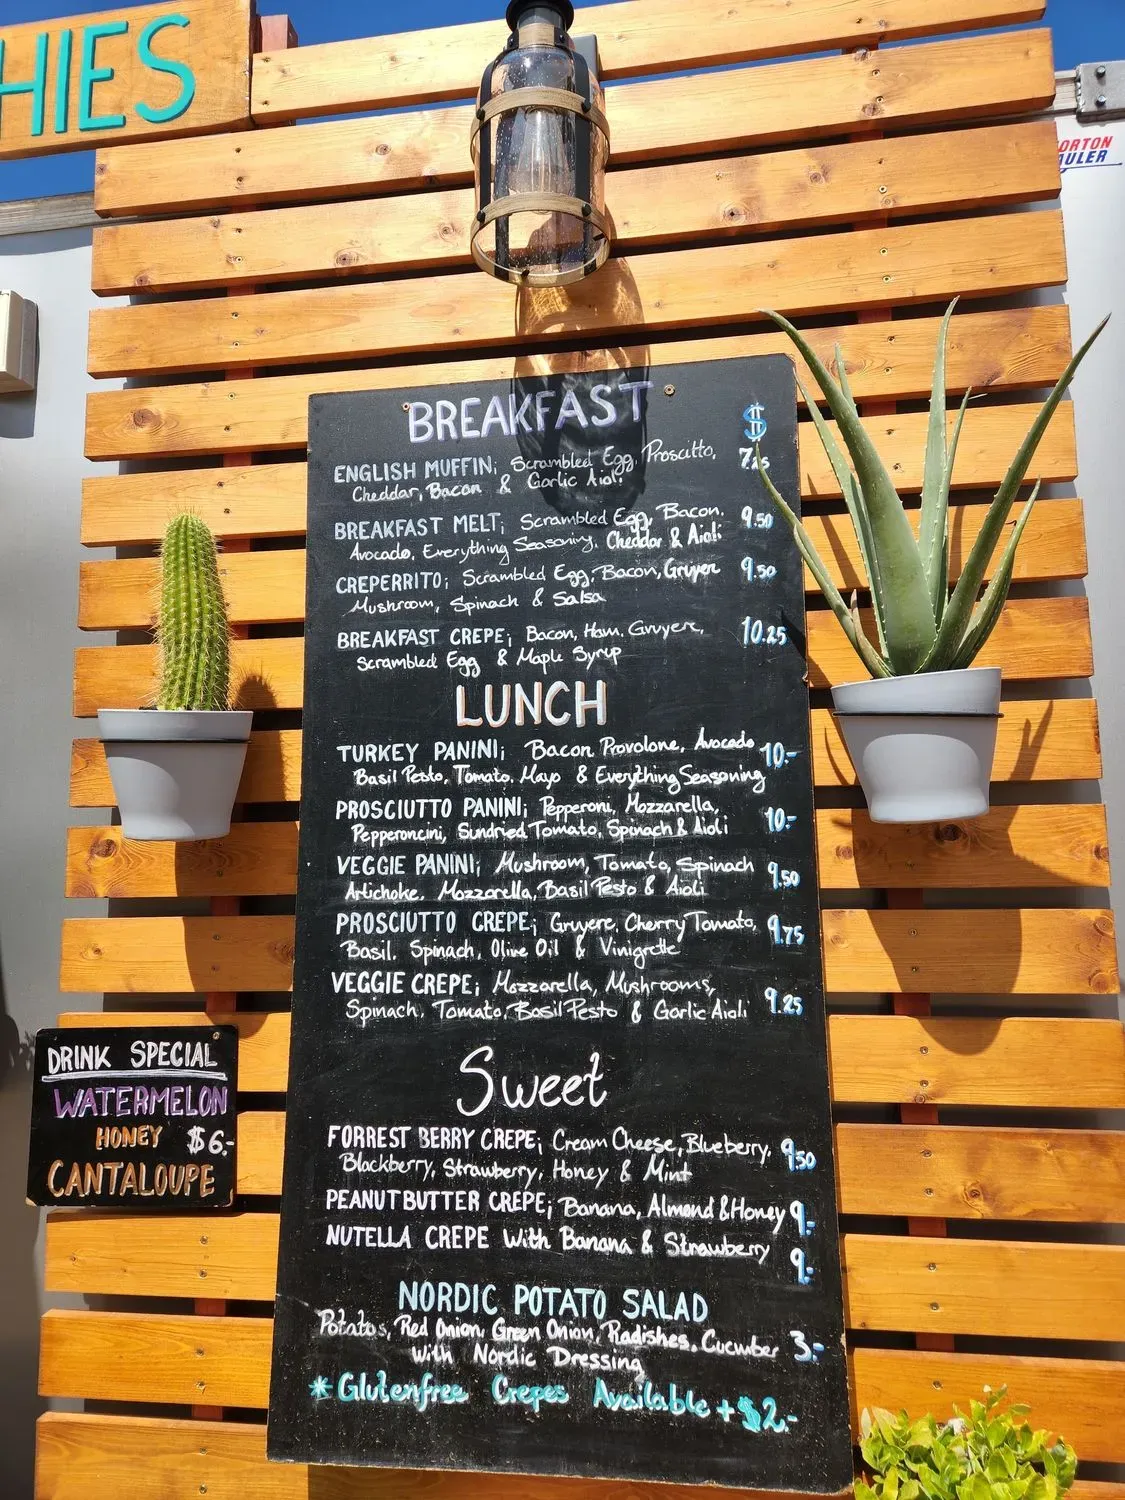 HIES
ORTON
ULER
BREAKFAST
$
ENGLISH MUFFIN; Scrambled Egg, Proscitto, 7.25
Cheddar, Bacon & Garlic Aioli
BREAKFAST MELT; Scrambled Egg, Bacon, 9.50
Avocado, Everything Seasoning, Cheddar & Aioli
CREPERRITO; Scrambled Egg, Bacon, Gruyer 9.50
Mushroom, Spinach & Salsa
BREAKFAST CREPE; Bacon, Ham, Gruyere, 10.25
Scrambled Egg & Maple Syrup
LUNCH
TURKEY PANINI; Bacon Provolone, Avocado 10.-
Basil Pesto, Tomato, Mayo & Everything Seasoning
PROSCIUTTO PANINI; Pepperoni, Mozzarella, 10.-
Pepperoncini, Sundried Tomato, Spinach & Aioli
VEGGIE PANINI; Mushroom, Tomato, Spinach 9.50
Artichoke, Mozzarella, Basil Pesto & Aioli
PROSCIUTTO CREPE; Gruyere, Cherry Tomato, 9.75
Basil, Spinach, Olive Oil & Vinigrette
VEGGIE CREPE; Mozzarella, Mushrooms, 9.25
Spinach, Tomato, Basil Pesto & Garlic Aioli
Sweet
FORREST BERRY CREPE; Cream Cheese, Blueberry, 9.50
Blackberry, Strawberry, Honey & Mint
PEANUTBUTTER CREPE; Banana, Almond & Honey 9.-
NUTELLA CREPE With Banana & Strawberry 9.-
NORDIC POTATO SALAD
Potatos, Red Onion, Green Onion, Radishes, Cucumber 3.-
With Nordic Dressing
* Glutenfree Crepes Available + $2.-
DRINK SPECIAL
WATERMELON
HONEY $6.-
CANTALOUPE